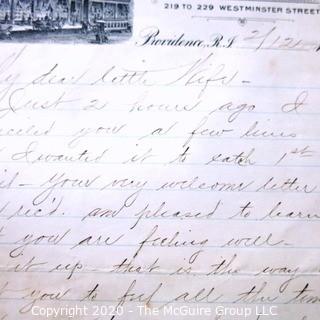 219 TO 229 WESTMINSTER STREET
Providence, R.I. 2/12
My dear little Wife -
Just 2 hours ago I
you a few lines
I wanted it to catch 1st
- Your very welcome letter
rec'd. am pleased to learn
you are feeling well -
it up - that is the way
you to feel all the time
Copyright © 2020 - The McGuire Group LLC